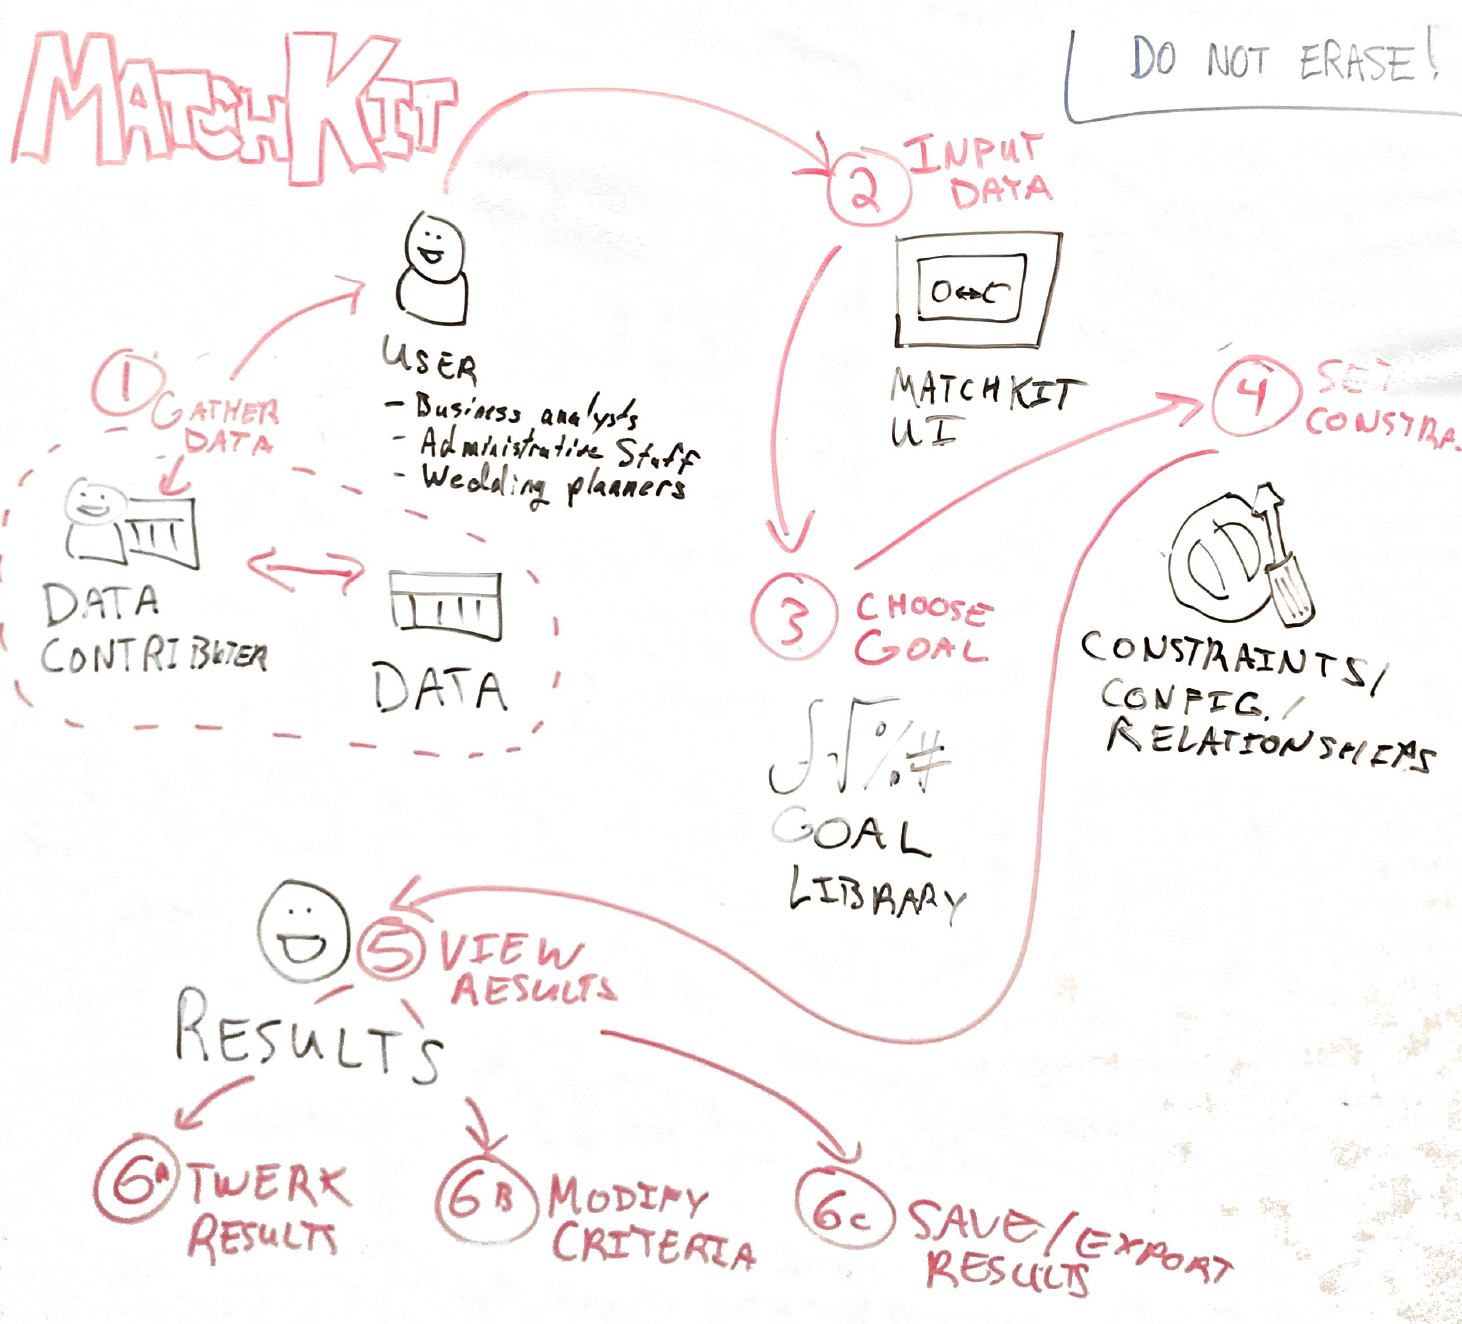 MATCHKIT
DO NOT ERASE!
2 INPUT
DATA
MATCHKIT
UI
USER
- Business analysts
- Administrative Staff
- Wedding planners
1 GATHER
DATA
DATA
CONTRIBUTER
DATA
3 CHOOSE
GOAL
∫√%#
GOAL
LIBRARY
4 SET
CONSTRA.
CONSTRAINTS/
CONFIG./
RELATIONSHIPS
5 VIEW
RESULTS
RESULTS
6A TWERK
RESULTS
6B MODIFY
CRITERIA
6C SAVE/EXPORT
RESULTS